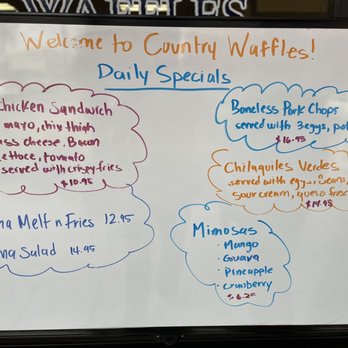 WAFFLES
Welcome to Country Waffles!
Daily Specials
Chicken Sandwich
mayo, chix thigh
ss cheese, Bacon
lettuce, tomato
served with crispy fries
$10.95
na Melt n Fries 12.95
na Salad 14.95
Boneless Pork Chops
served with 3 eggs, pot
$16.95
Chilaquiles Verdes
served with eggs, beans,
sour cream, queso fresc
Mimosas
· Mango
· Guava
· Pineapple
· Cranberry